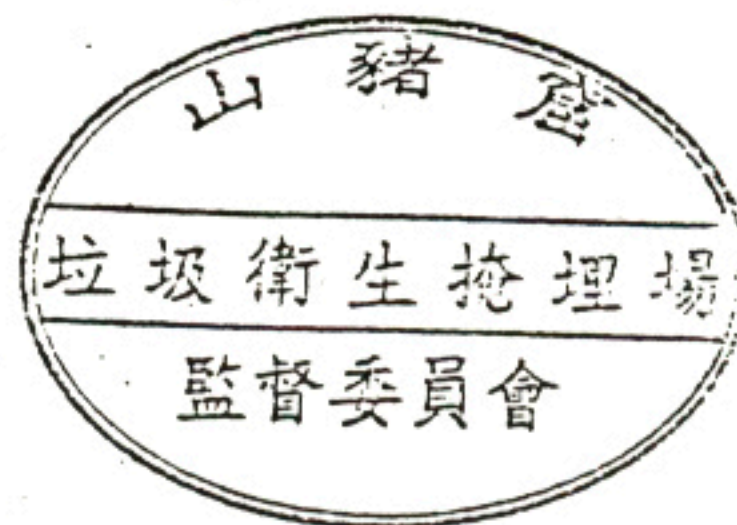 山豬窟
垃圾衛生掩埋場
監督委員會